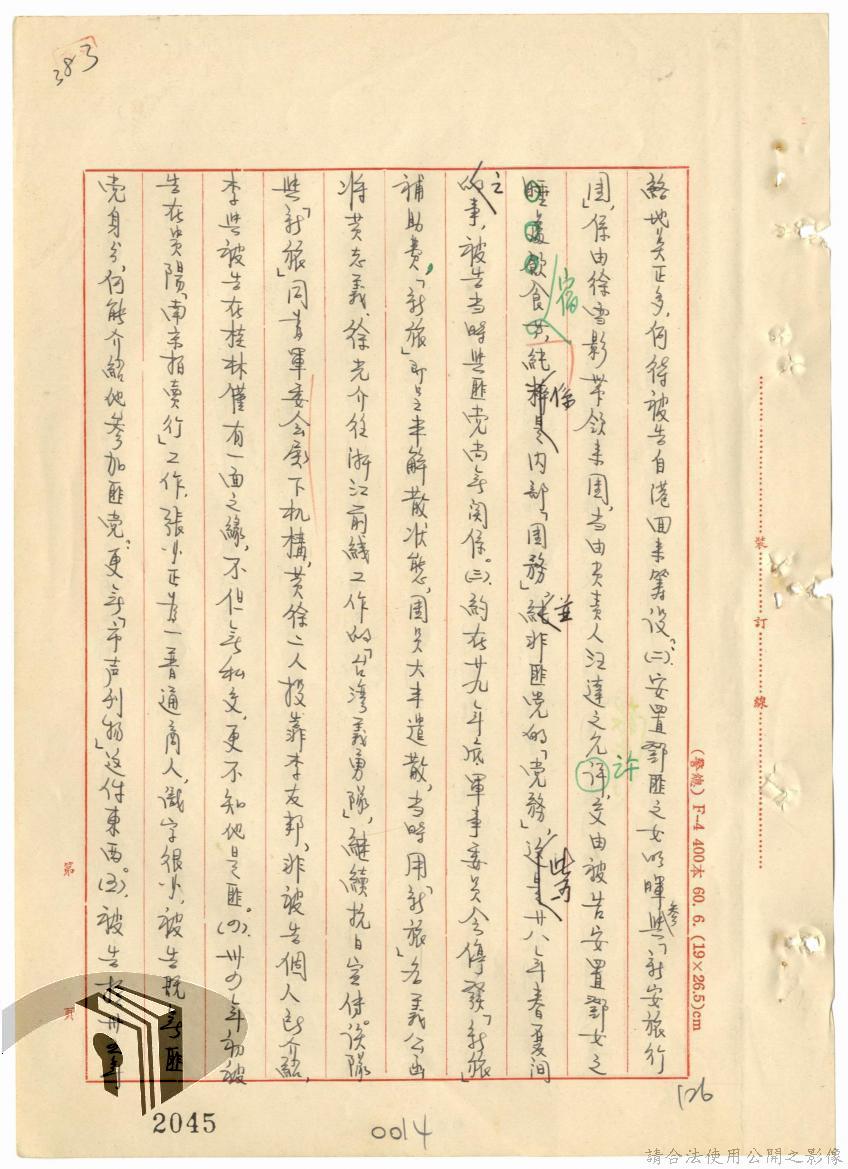 383
絡地點正多，何待被告自港回來籌設。(二)安置鄧匪之女明暉參與「新安旅行
團」係由徐雪影帶領來團，當由負責人汪達之允許，交由被告安置鄧女之
睡處飲食宿，純係內部「團務」，並非匪党的「党務」，此為廿八年春夏間
之事，被告当時與匪党尚無関係。(三)約在廿九年底軍事委員会停發「新旅」
補助費，「新旅」即呈半解散状態，團員大半遣散，当時用「新旅」名義公函
將黃志義、徐光介往浙江前綫工作的「台湾義勇隊」，継續抗日宣傳。该隊
與「新旅」同為軍委会屬下机構，黃徐二人投靠李友邦，非被告個人所介紹，
李與被告在桂林僅有一面之緣，不但無私交，更不知他是匪。(四)卅四年初被
告在贵陽「南京拍賣行」工作，張少正為一普通商人，識字很少，被告既無匪
党身分，何能介紹他參加匪党？更無「市声刋物」这件東西。(五)被告於卅五年
装訂線
(警總) F-4 400本 60. 6. (19×26.5)cm
第 頁
126
2045
0014
請合法使用公開之影像